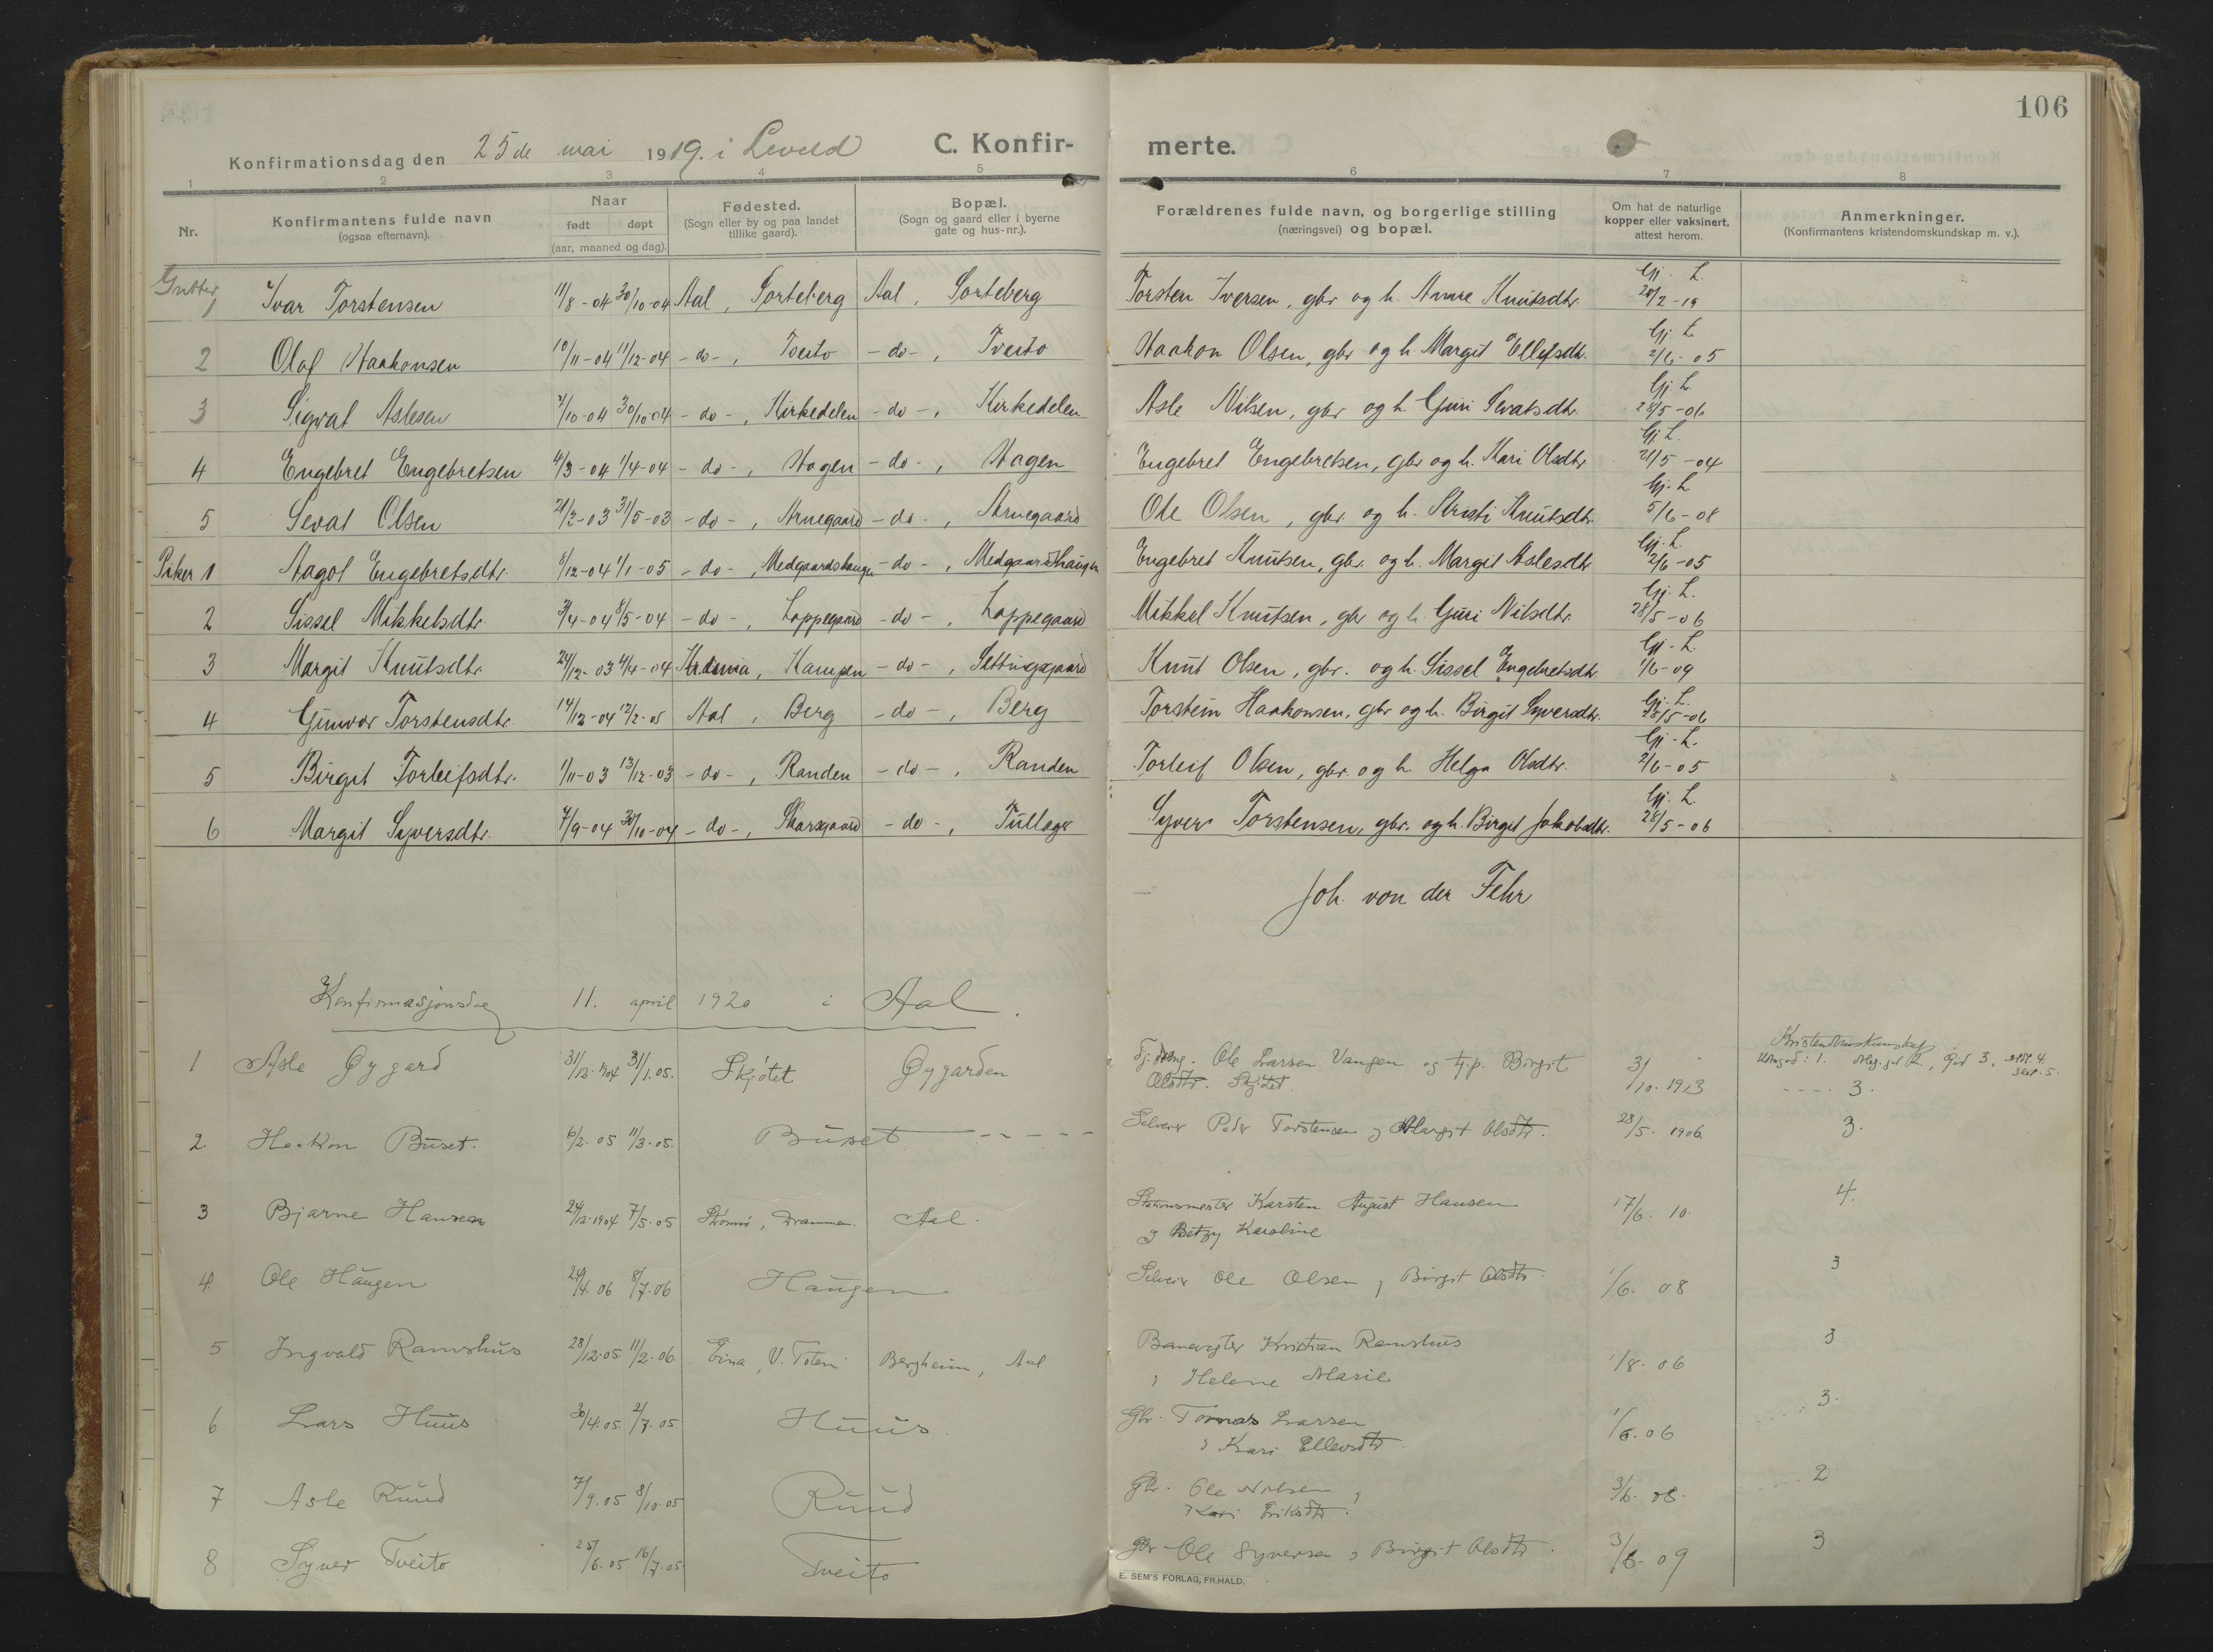 106
Konfirmationsdag den 25de mai 1919. i Leveld C. Konfir- merte.
1 2 3 4 5 6 7 8
Nr. Konfirmantens fulde navn (ogsaa efternavn). Naar født døpt (aar, maaned og dag). Fødested. (Sogn eller by og paa landet tillike gaard). Bopæl. (Sogn og gaard eller i byerne gate og hus-nr.). Forældrenes fulde navn, og borgerlige stilling (næringsvei) og bopæl. Om hat de naturlige kopper eller vaksinert, attest herom. Anmerkninger. (Konfirmantens kristendomskundskap m. v.).
Gutter 1 Ivar Torstensen 11/8-04 30/10-04 Aal, Sorteberg Aal, Sorteberg Torsten Iversen, gbr og h. Anne Knutsdtr. Gj. L. 20/2-19
2 Olaf Haakonsen 10/11-04 11/12-04 -do-, Tveito -do-, Tveito Haakon Olsen, gbr og h. Margit Ellefsdtr. Gj. L. 2/6-05
3 Sigvat Aslesen 7/10-04 30/10-04 -do-, Kirkedelen -do-, Kirkedelen Asle Nilsen, gbr og h. Guri Sevatsdtr. Gj. L. 28/5-06
4 Engebret Engebretsen 4/3-04 1/4-04 -do-, Hagen -do-, Hagen Engebret Engebretsen, gbr og h. Kari Olsdtr Gj L. 21/5-04
5 Sevat Olsen 21/3-03 31/5-03 -do-, Arnegaard -do-, Arnegaard Ole Olsen, gbr. og h. Kristi Knutsdtr. Gj. L 5/6-08
Piker 1 Aagot Engebretsdtr. 8/12-04 1/1-05 -do-, Medgaardshaugen -do-, Medgaardshaugen Engebret Knutsen, gbr. og h. Margit Aslesdtr Gj. L. 2/6-05
2 Sissel Mikkelsdtr 3/4-04 8/5-04 -do-, Loppegaard -do-, Loppegaard Mikkel Knutsen, gbr og h. Guri Nilsdtr. Gj. L. 28/5-06
3 Margit Knutsdtr. 24/12-03 4/4-04 Kr.ania, Kampen -do-, Settingsgaard Knut Olsen, gbr. og h. Sissel Engebretsdtr Gj. L. 1/6-09
4 Gunvor Torstensdtr. 14/12-04 12/2-05 Aal, Berg -do-, Berg Torstein Haakonsen, gbr og h. Birgit Syversdtr. Gj. L. 28/5-06
5 Birgit Torleifsdtr. 1/11-03 13/12-03 -do-, Randen -do-, Randen Torleif Olsen, gbr. og h. Helga Olsdtr. Gj. L. 2/6-05
6 Margit Syversdtr. 7/9-04 30/10-04 -do-, Skarsgaard -do-, Tullager Syver Torstensen, gbr. og h. Birgit Jakobsdtr. Gj. L. 28/5-06
Joh. von der Fehr
Konfirmasjonsdag 11. april 1920 i Aal.
Kristendomskunskap
1 Asle Gygard 31/12.1904 31/1.05. Skjøtet Gygarden Ole Larsen Vangen og Birgit Olsdtr. Skjøtet. 31/10.1913 3.
2. Haakon Buset. 6/2.05 11/3.05. Buset Selveier Peder Torstensen og Margit Olsdtr. 28/5.1906. 3.
3 Bjarne Hansen 24/12.1904 7/5.05 Strømsø, Drammen. Aal. Stationsmester Karsten August Hansen
og Betzy Karoline 17/6.10. 4.
4. Ole Haugen 24/4.06 8/7.06 Haugen Selveier Ole Olsen og Birgit Olsdtr. 1/6.08 3
5 Ingvald Ramshus 28/12.05 11/2.06 Eina, V. Toten Bergheim, Aal Banevogter Kristian Ramshus
og Helene Marie 1/8.06 3
6 Lars Huus 30/4.05. 2/7.05 Huus. Gbr. Tomas Larsen
og Kari Ellevsdtr. 1/6.06 3.
7 Asle Ruud 7/9.05 8/10.05 Ruud Gbr. Ole Nilsen
og Kari Eriksdtr. 3/6.08. 2
8 Syver Tveito 25/6.05 16/7.05 Tveito Gbr Ole Syversen og Birgit Olsdtr. 3/6.09 3
E. SEM'S FORLAG, FR.HALD.